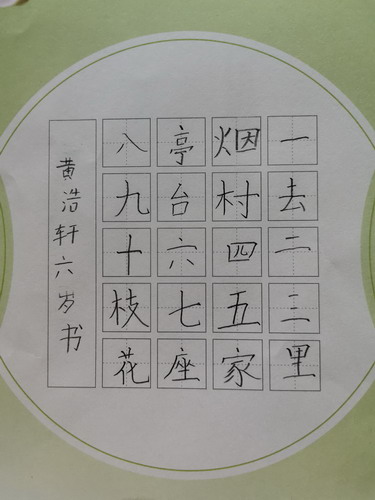 一去二三里
烟村四五家
亭台六七座
八九十枝花
黄浩轩六岁书